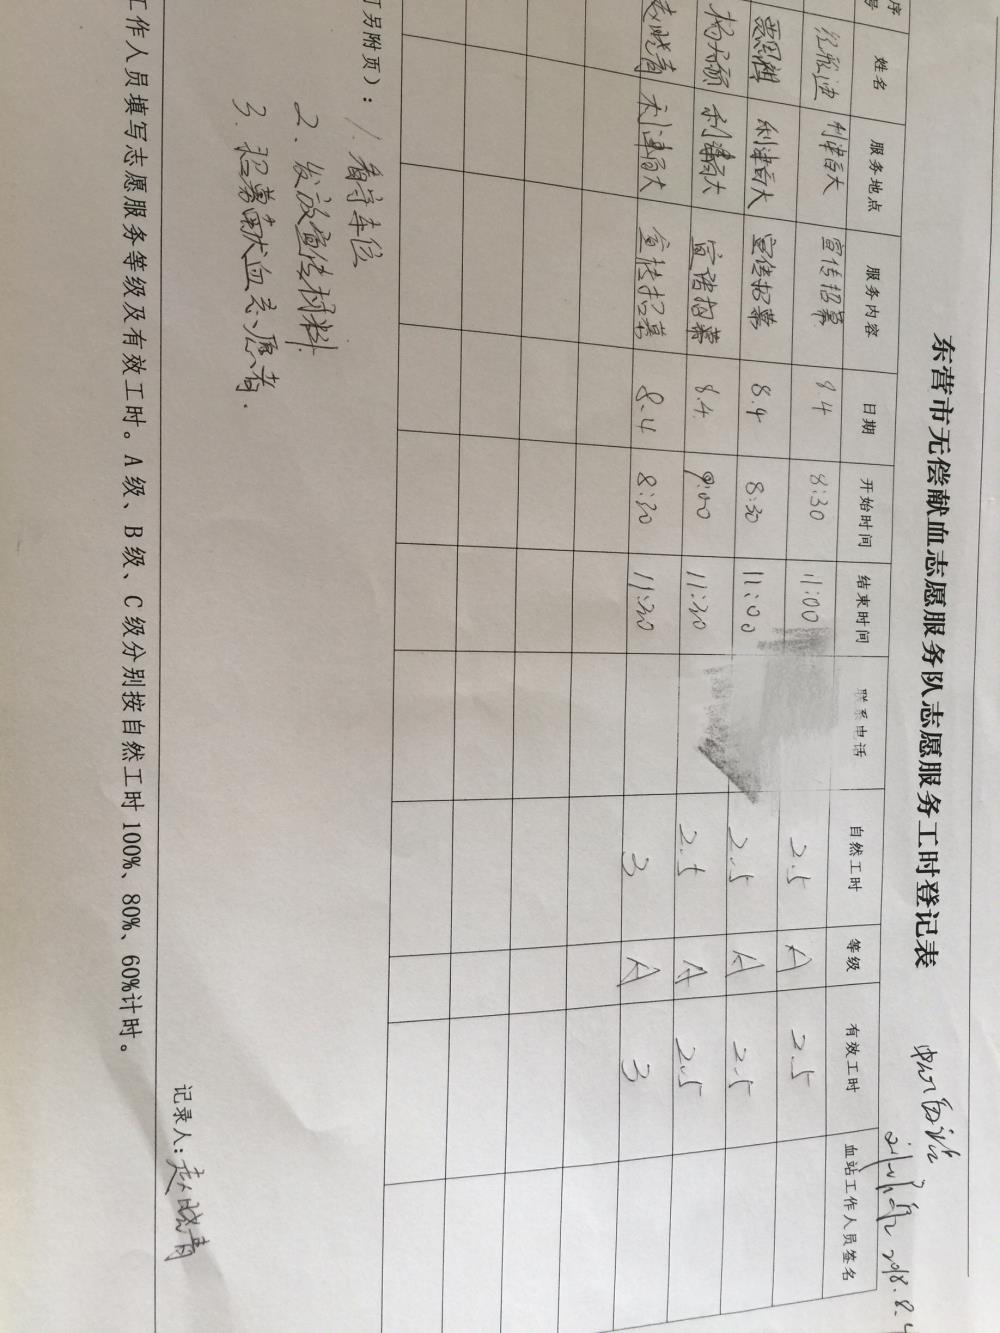 东营市无偿献血志愿服务队志愿服务工时登记表
2018.8.4
序号 姓名 服务地点 服务内容 日期 开始时间 结束时间 联系电话 自然工时 等级 有效工时 血站工作人员签名
利津百大 宣传招募 8.4 8:30 11:00 2.5 A 2.5
贾恩祖 利津百大 宣传招募 8.4 8:30 11:00 2.5 A 2.5
利津百大 宣传招募 8.4 9:00 11:30 2.5 A 2.5
赵晓青 利津百大 宣传招募 8.4 8:30 11:30 3 A 3
另附页）：1. 看守车位
2. 发放宣传材料.
3. 招募献血志愿者.
记录人：赵晓青
工作人员填写志愿服务等级及有效工时。A级、B级、C级分别按自然工时100%、80%、60%计时。